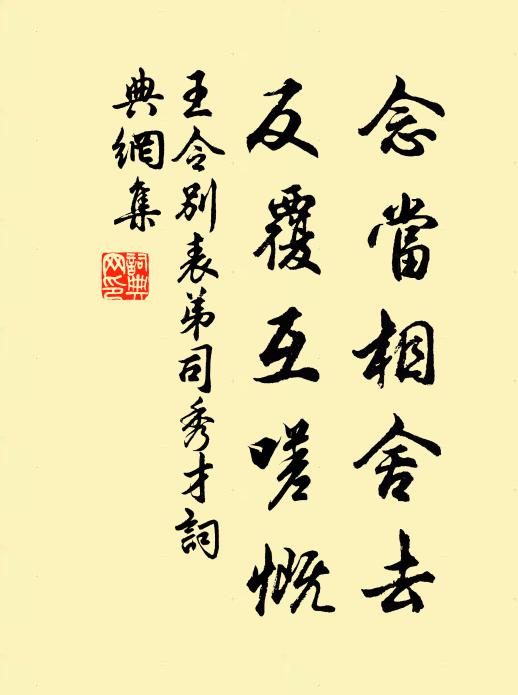 念當相舍去
反覆互嗟慨
王令別表弟司秀才詞
典網集
詞典网印